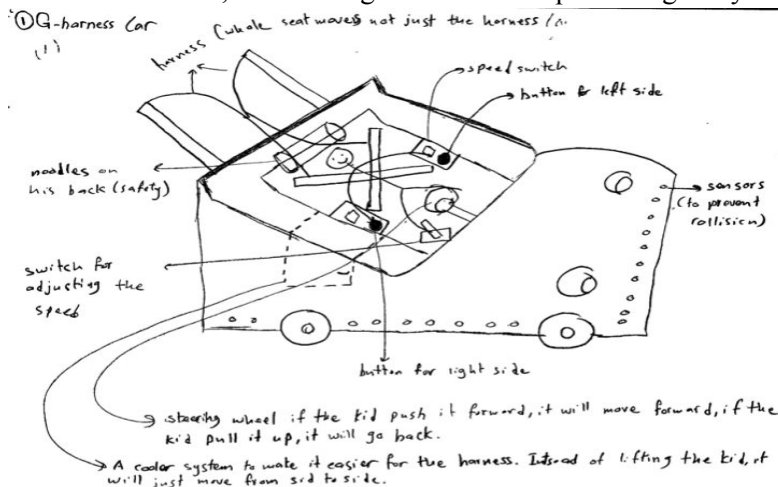 ① G-harness Car
(1)
harness (whole seat moves not just the harness
speed switch
button for left side
noodles on
his back (safety)
sensors
(to prevent
collision)
switch for
adjusting the
speed
button for right side
steering wheel if the kid push it forward, it will move forward, if the
kid pull it up, it will go back.
A cooler system to make it easier for the harness. Instead of lifting the kid, it
will just move from sid to side.